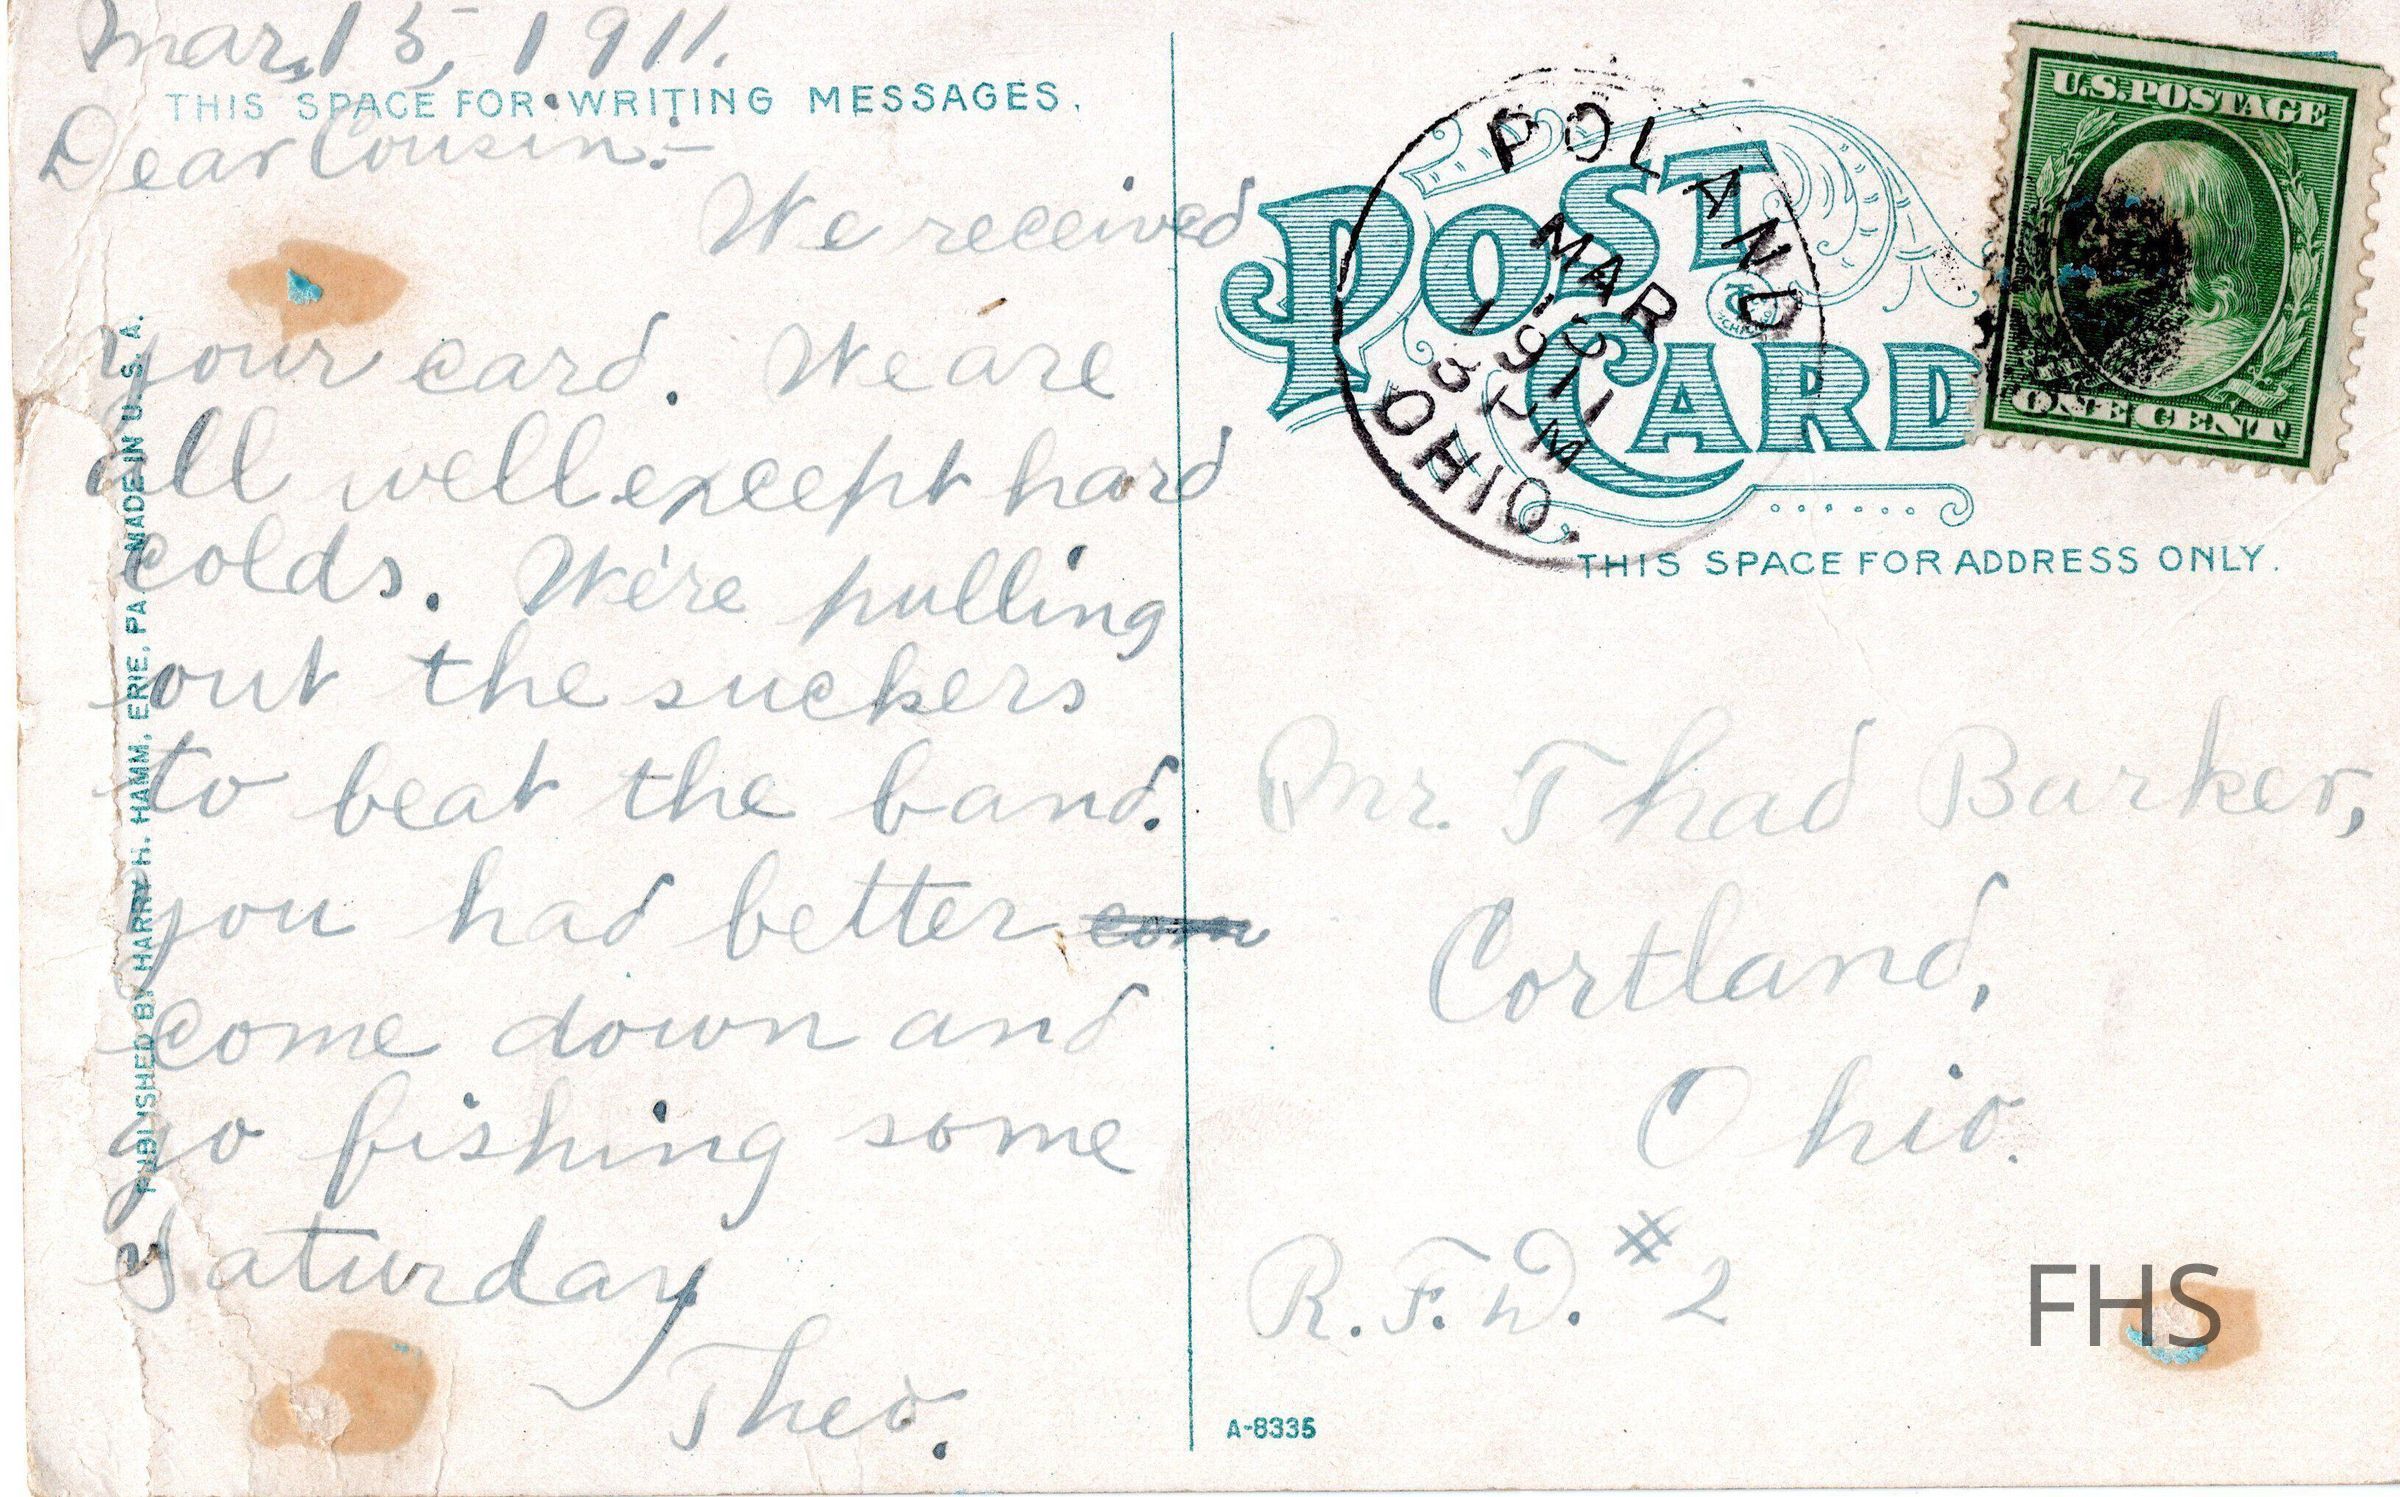 Mar. 15, 1911.
THIS SPACE FOR WRITING MESSAGES.
Dear Cousin:-
We received
your card. We are
all well except hard
colds. We're pulling
out the suckers
to beat the band.
you had better com
come down and
go fishing some
Saturday
Theo.
PUBLISHED BY HARRY H. HAMM, ERIE, PA. MADE IN U.S.A.
POST CARD
POLAND
MAR
15
1911
3 PM
OHIO.
U.S. POSTAGE
ONE CENT
THIS SPACE FOR ADDRESS ONLY.
Mr. Thad Barker,
Cortland,
Ohio.
R.F.D. #2
FHS
A-8335